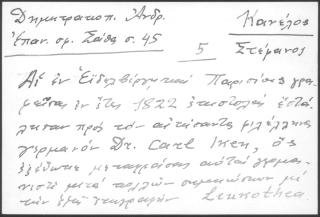 Δημητρακοπ. Ἀνδρ.
Ἐπαν. σμ. Σάθα σ. 45
Κανέλος
5
Στέφανος
Αἱ ἐν Ἑϊδελβέργῃ καὶ Παρισίοις γρα-
ἐν ἔτει 1822 ἐπιστολαὶ ἐστά-
λησαν πρὸς τὸν φιλέλληνα
γερμανὸν Dr. Carl Iken, ὃς
ἐξέδωκε μεταφράσας αὐτὰς γερμα-
νιστὶ μετὰ πολλῶν σημειώσεων μὲ
τὴν ἐπιγραφὴν Leukothea.